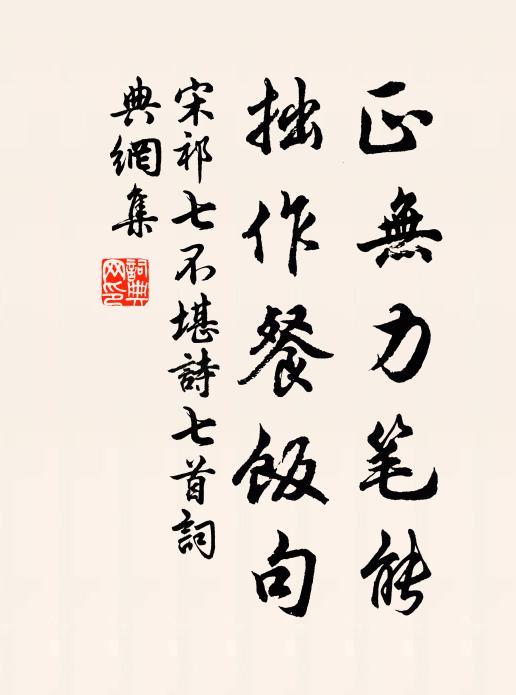 正無力笔能
拙作餐飯句
宋祁七不堪詩七首詞
典網集
詞典
网印